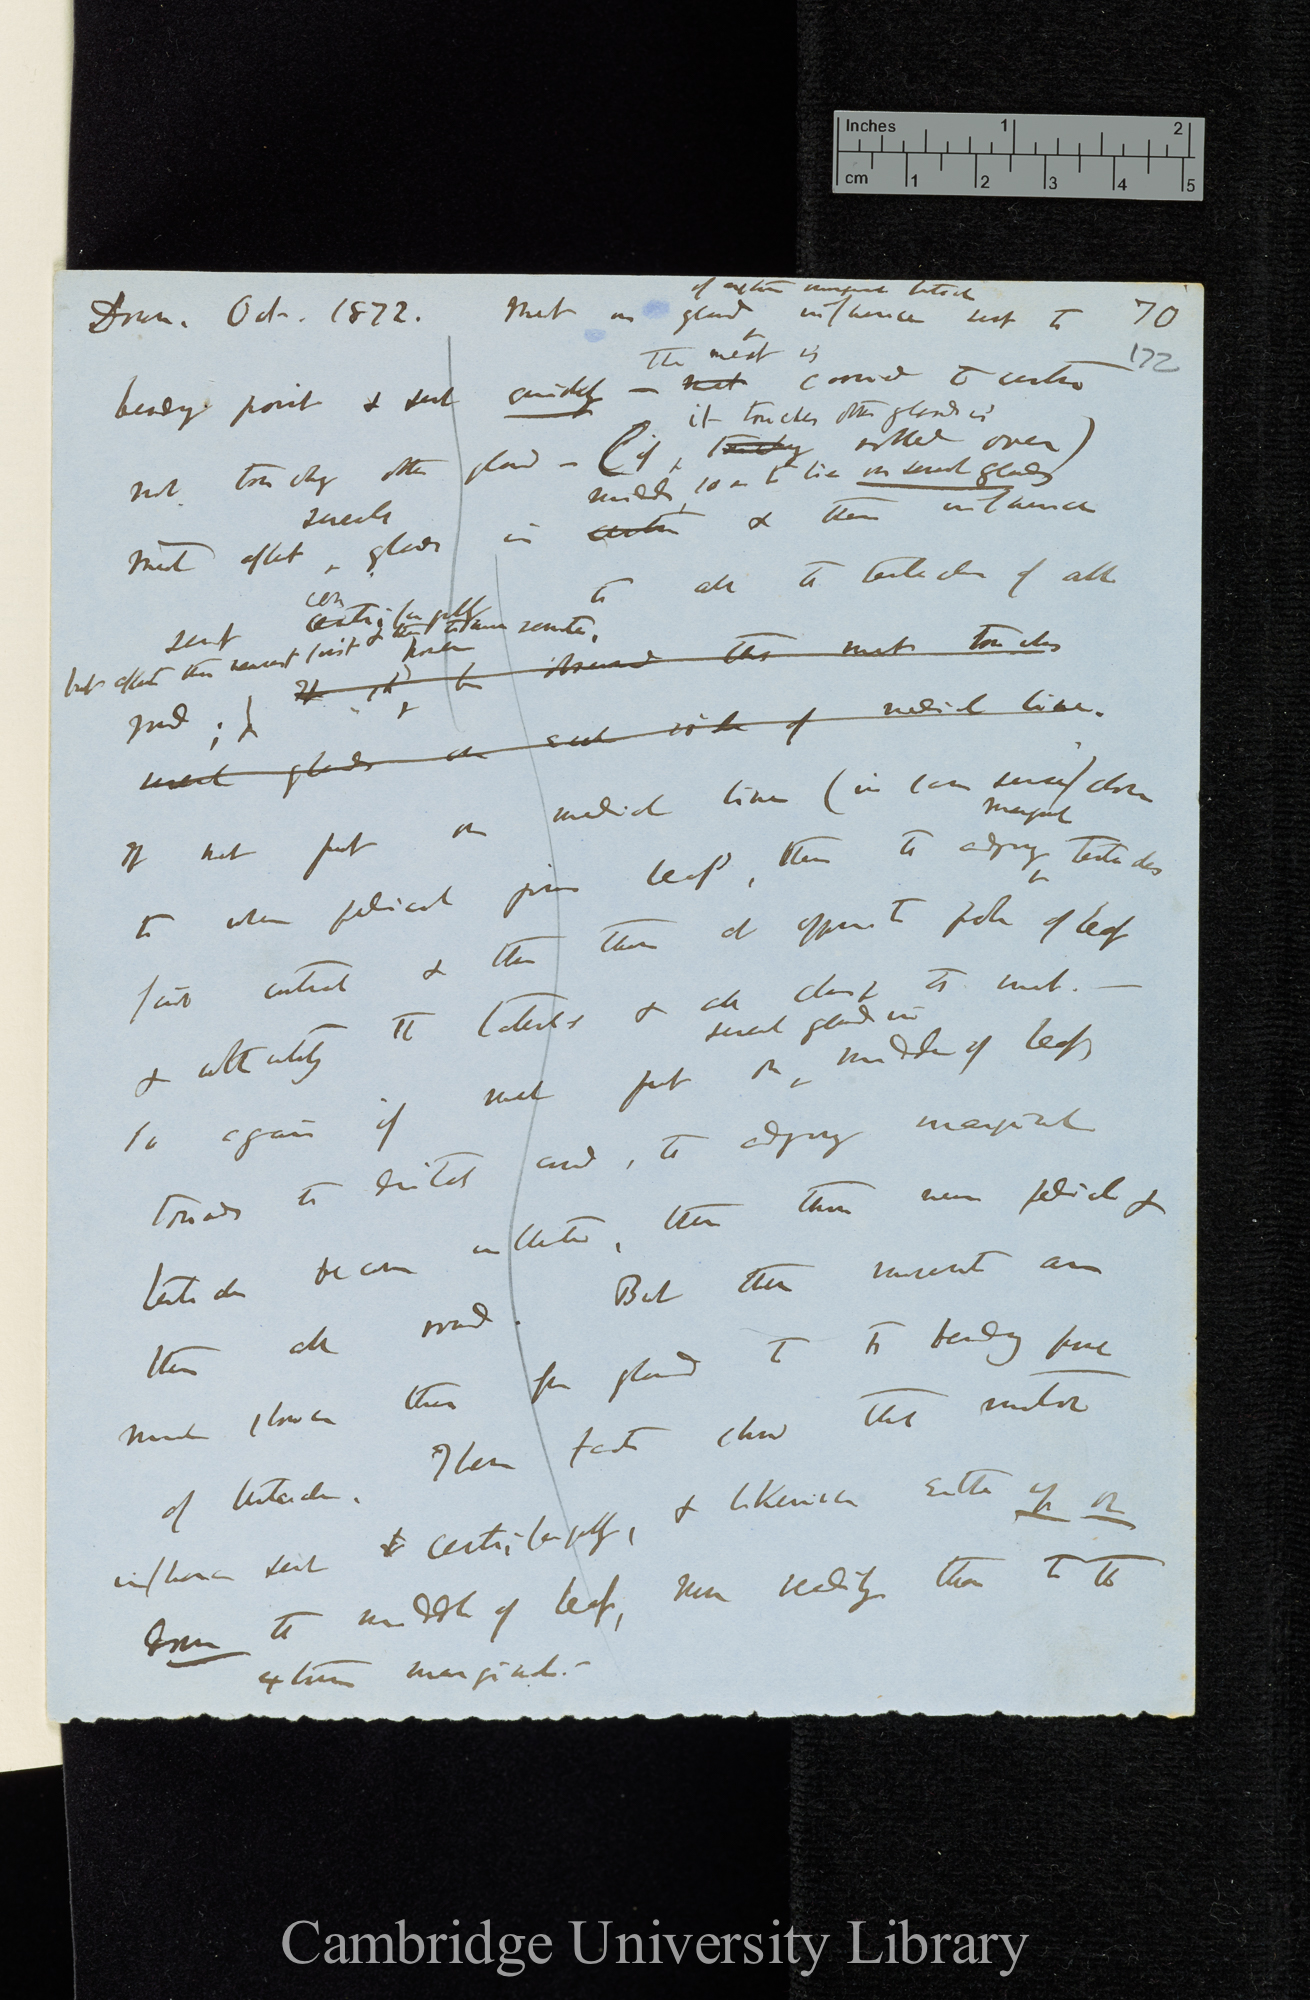 Inches 1 2
cm 1 2 3 4 5
of extreme marginal tentacle
Dros. Oct. 1872. Meat on gland influence sent to 70
172
The meat is
bending point & sent quickly — meat carried to centre
it touches other glands is
not touching other gland — (if, touching rolled over)
middle, so as to lie on several glands
several
Meat affect glands in centre & then influence
sent centrifugally to all the tentacles of all
but affects the nearest first & then the more remote,
round; & If it be observed that meat touches
several glands on each side of medial line.
If meat put on medial line (in some sense) close
marginal
to where pedicel joins leaf, then the adjoining tentacles
first contract & then those at opposite pole of leaf
& ultimately the laterals & all clasp the meat. —
several glands in
So again if meat put on middle of leaf,
towards the distal end, the adjoining marginal
tentacles become inflected, then those near pedicel &
then all round. But then movements are
much slower than from gland to the bending place
of tentacles. These facts show that motor
influence sent centrifugally, & likewise either up or
down the middle of leaf, more readily than to the
extreme marginal. —
Cambridge University Library